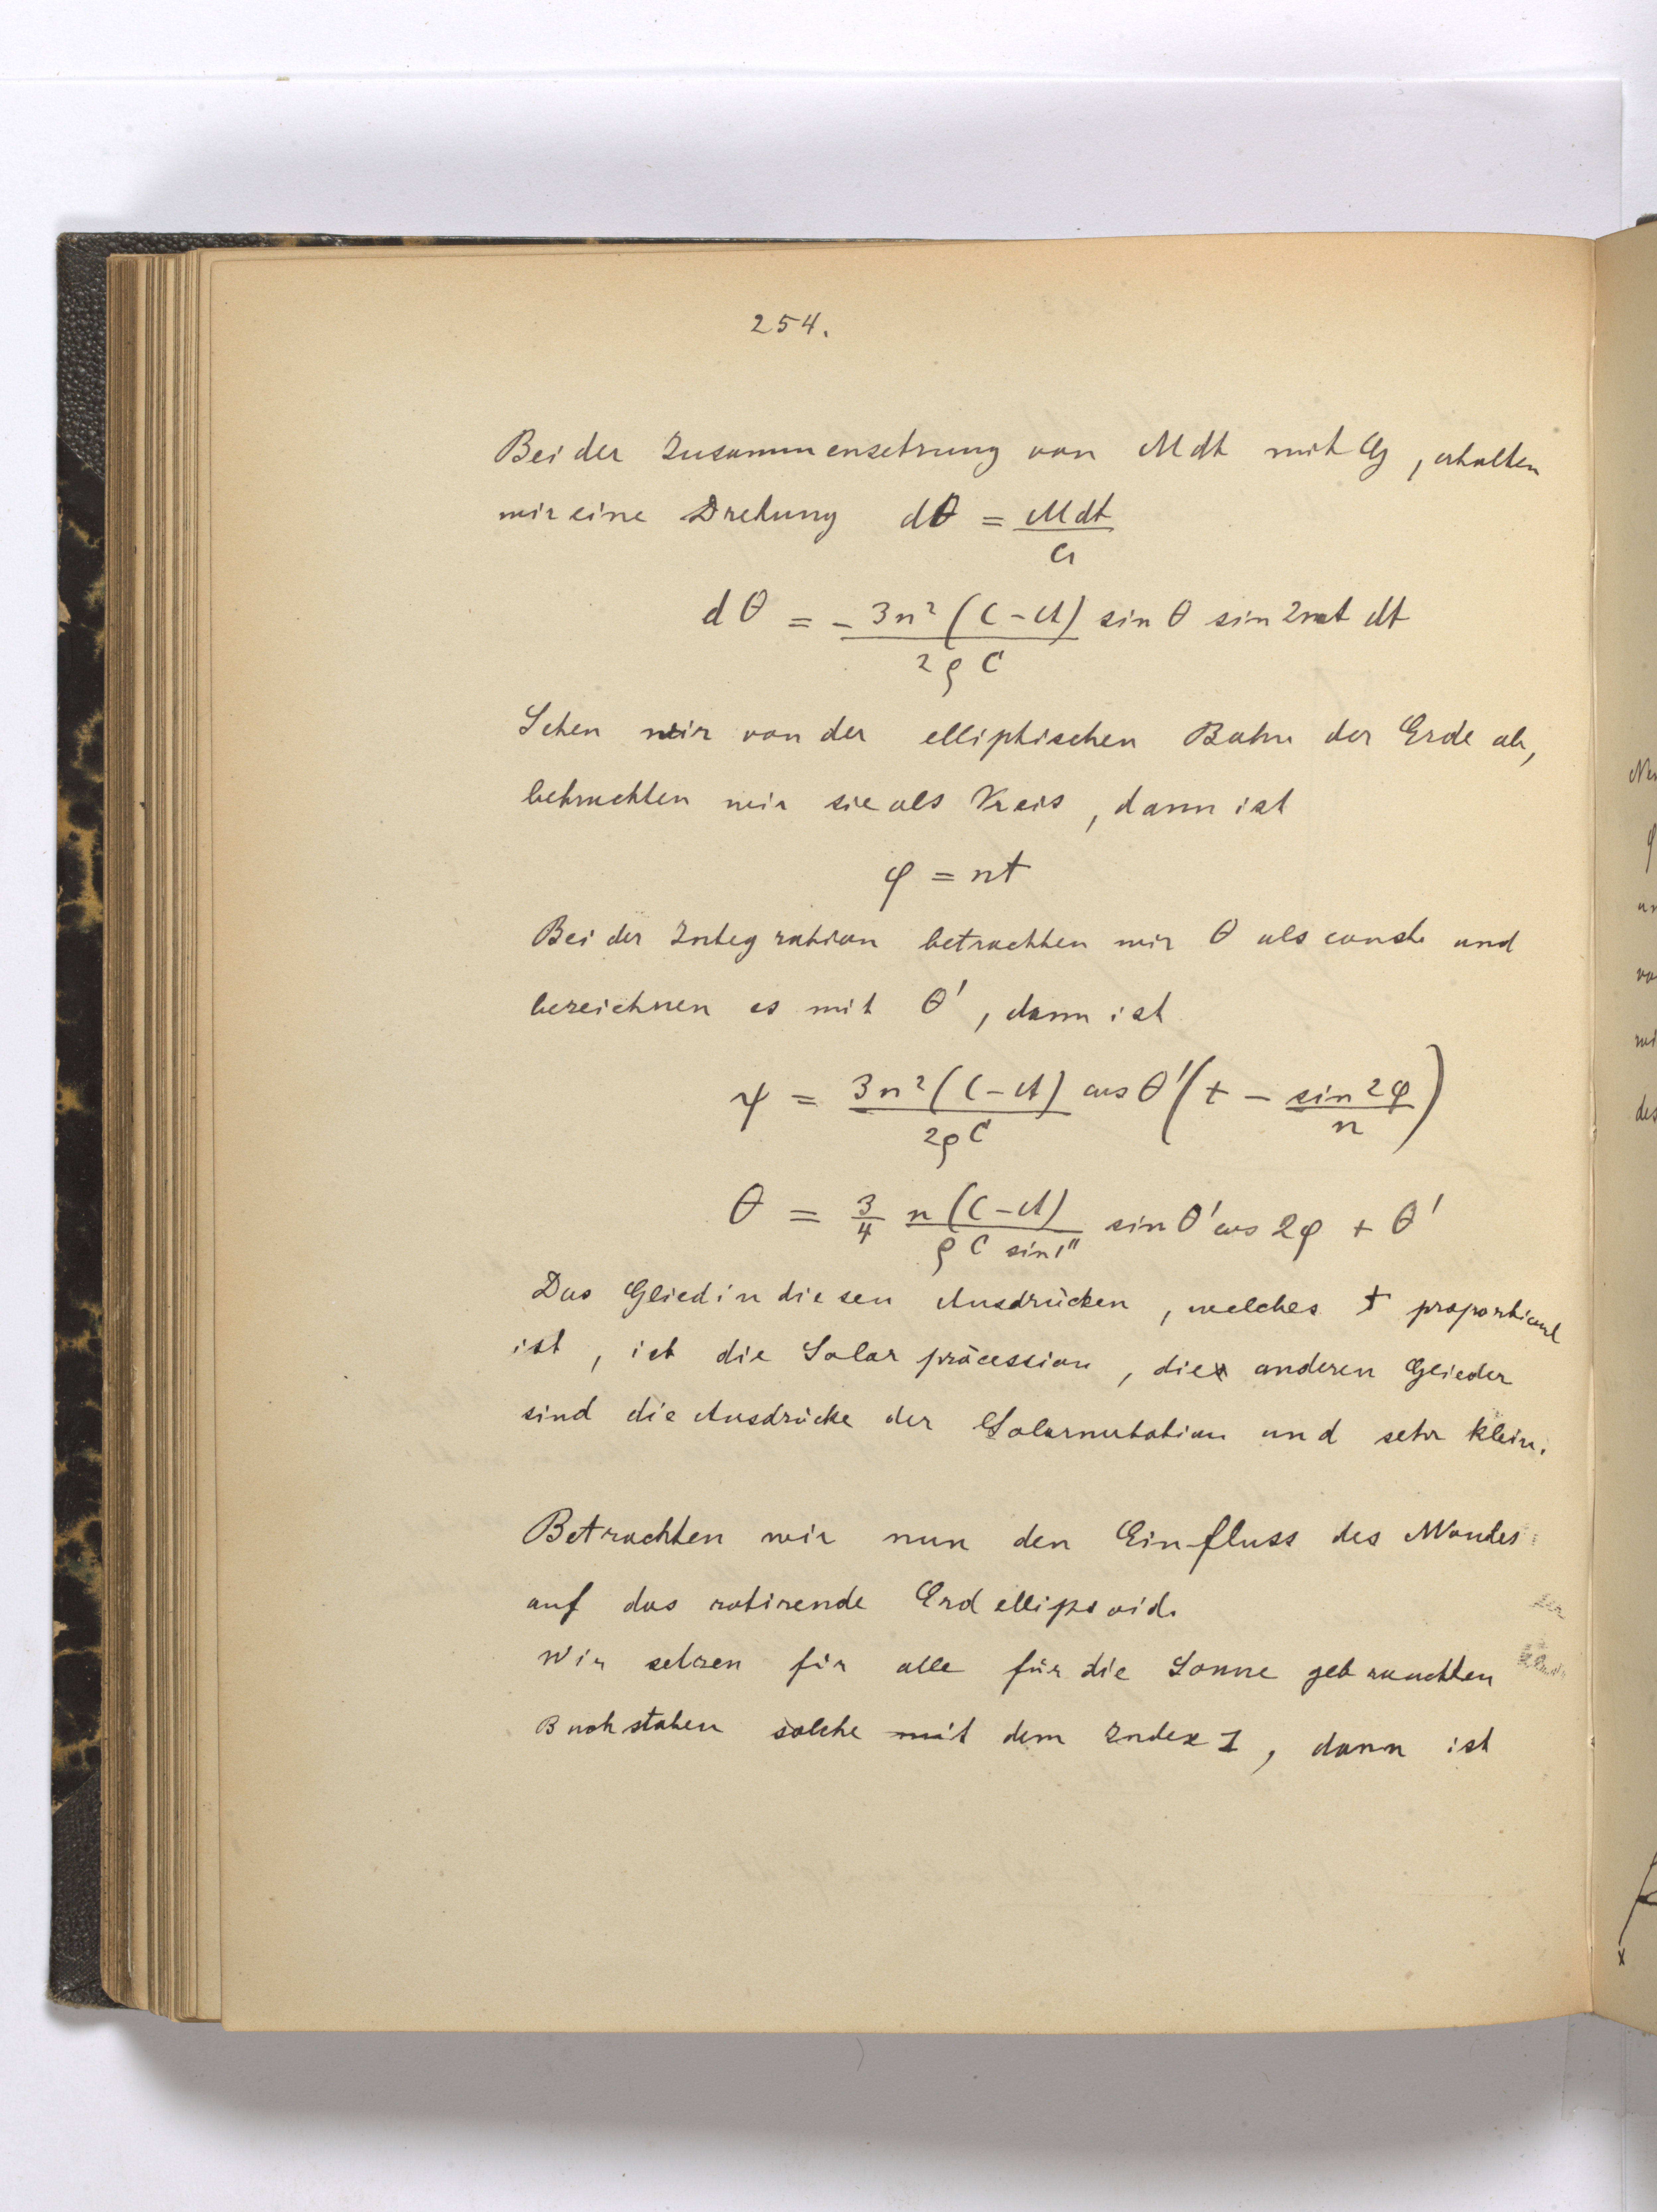 254.
Bei der Zusammensetzung von Mdt mit G, erhalten
wir eine Drehung dθ = Mdt / G
dθ = - 3n² (C-A) / 2ρC sin θ sin 2nt dt
Sehen wir von der elliptischen Bahn der Erde ab,
betrachten wir sie als Kreis, dann ist
φ = nt
Bei der Integration betrachten wir θ als const. und
bezeichnen es mit θ', dann ist
ψ = 3n² (C-A) / 2ρC cos θ' (t - sin 2φ / n)
θ = 3/4 n (C-A) / ρ C sin 1" sin θ' cos 2φ + θ'
Das Glied in diesen Ausdrücken, welches t proportional
ist, ist die Solarpräcession, die anderen Glieder
sind die Ausdrücke der Solarnutation und sehr klein.
Betrachten wir nun den Einfluss des Mondes
auf das rotirende Erdellipsoid.
Wir setzen für alle für die Sonne gebrauchten
Buchstaben solche mit dem Index 1, dann ist